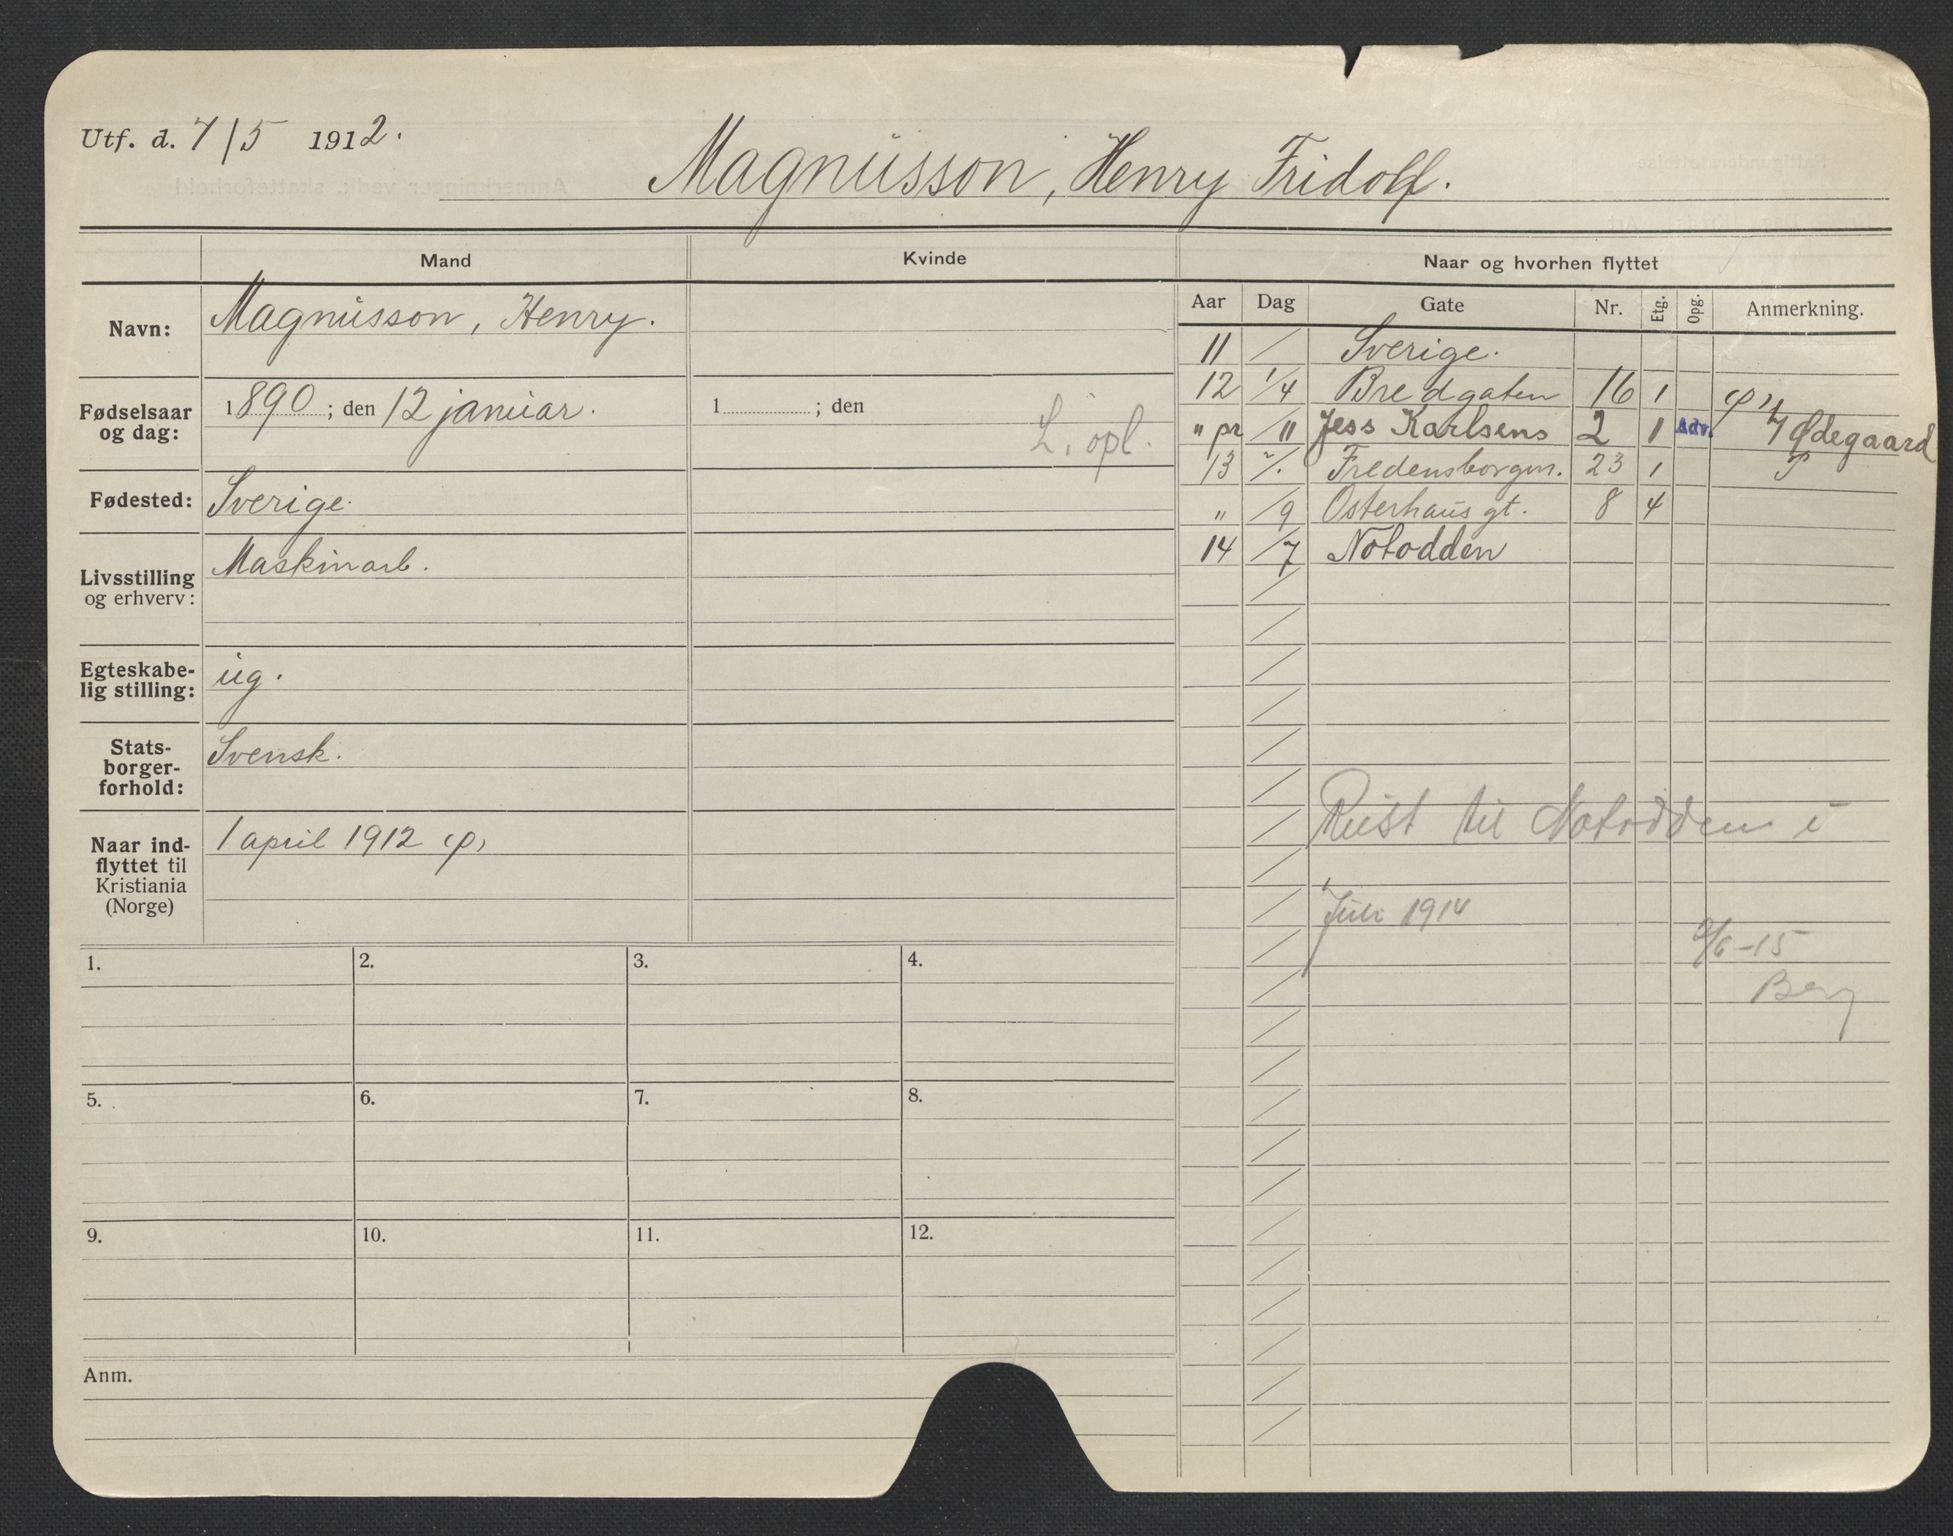 Utf. d. 7/5 1912.
Magnusson, Henry Fridolf.
Mand
Kvinde
Naar og hvorhen flyttet
Navn: Magnusson, Henry.
Fødselsaar og dag: 1890; den 12 januar.
1 ; den
L. opl.
Fødested: Sverige.
Livsstilling og erhverv: Maskinarb.
Egteskabe-
lig stilling: ug.
Stats-
borger-
forhold: Svensk.
Naar ind-
flyttet til
Kristiania
(Norge) 1 april 1912
Aar Dag Gate Nr. Etg. Opg. Anmerkning.
11 / Sverige.
12 1/4 Bredgaten 16 1
" pr /11 Jess Karlsens 2 1 Adv. Ødegaard
13 Fredensborgvn. 23 1
" /9 Osterhaus gt. 8 4
14 /7 Notodden
Reist til Notodden i
Juli 1914
/6-15
Berg
1. 2. 3. 4.
5. 6. 7. 8.
9. 10. 11. 12.
Anm.